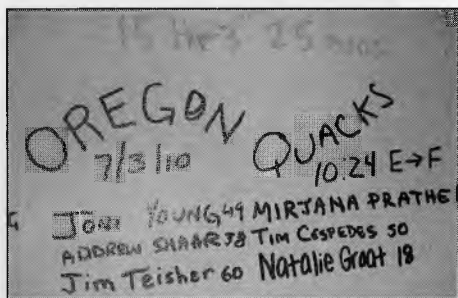 15 Hrs 25 mins
OREGON QUACKS
7/3/10 10:24 E→F
JONI YOUNG 49 MIRJANA PRATHE
ANDREW SHAAR 58 TIM CESPEDES 50
Jim Teisher 60 Natalie Graat 18